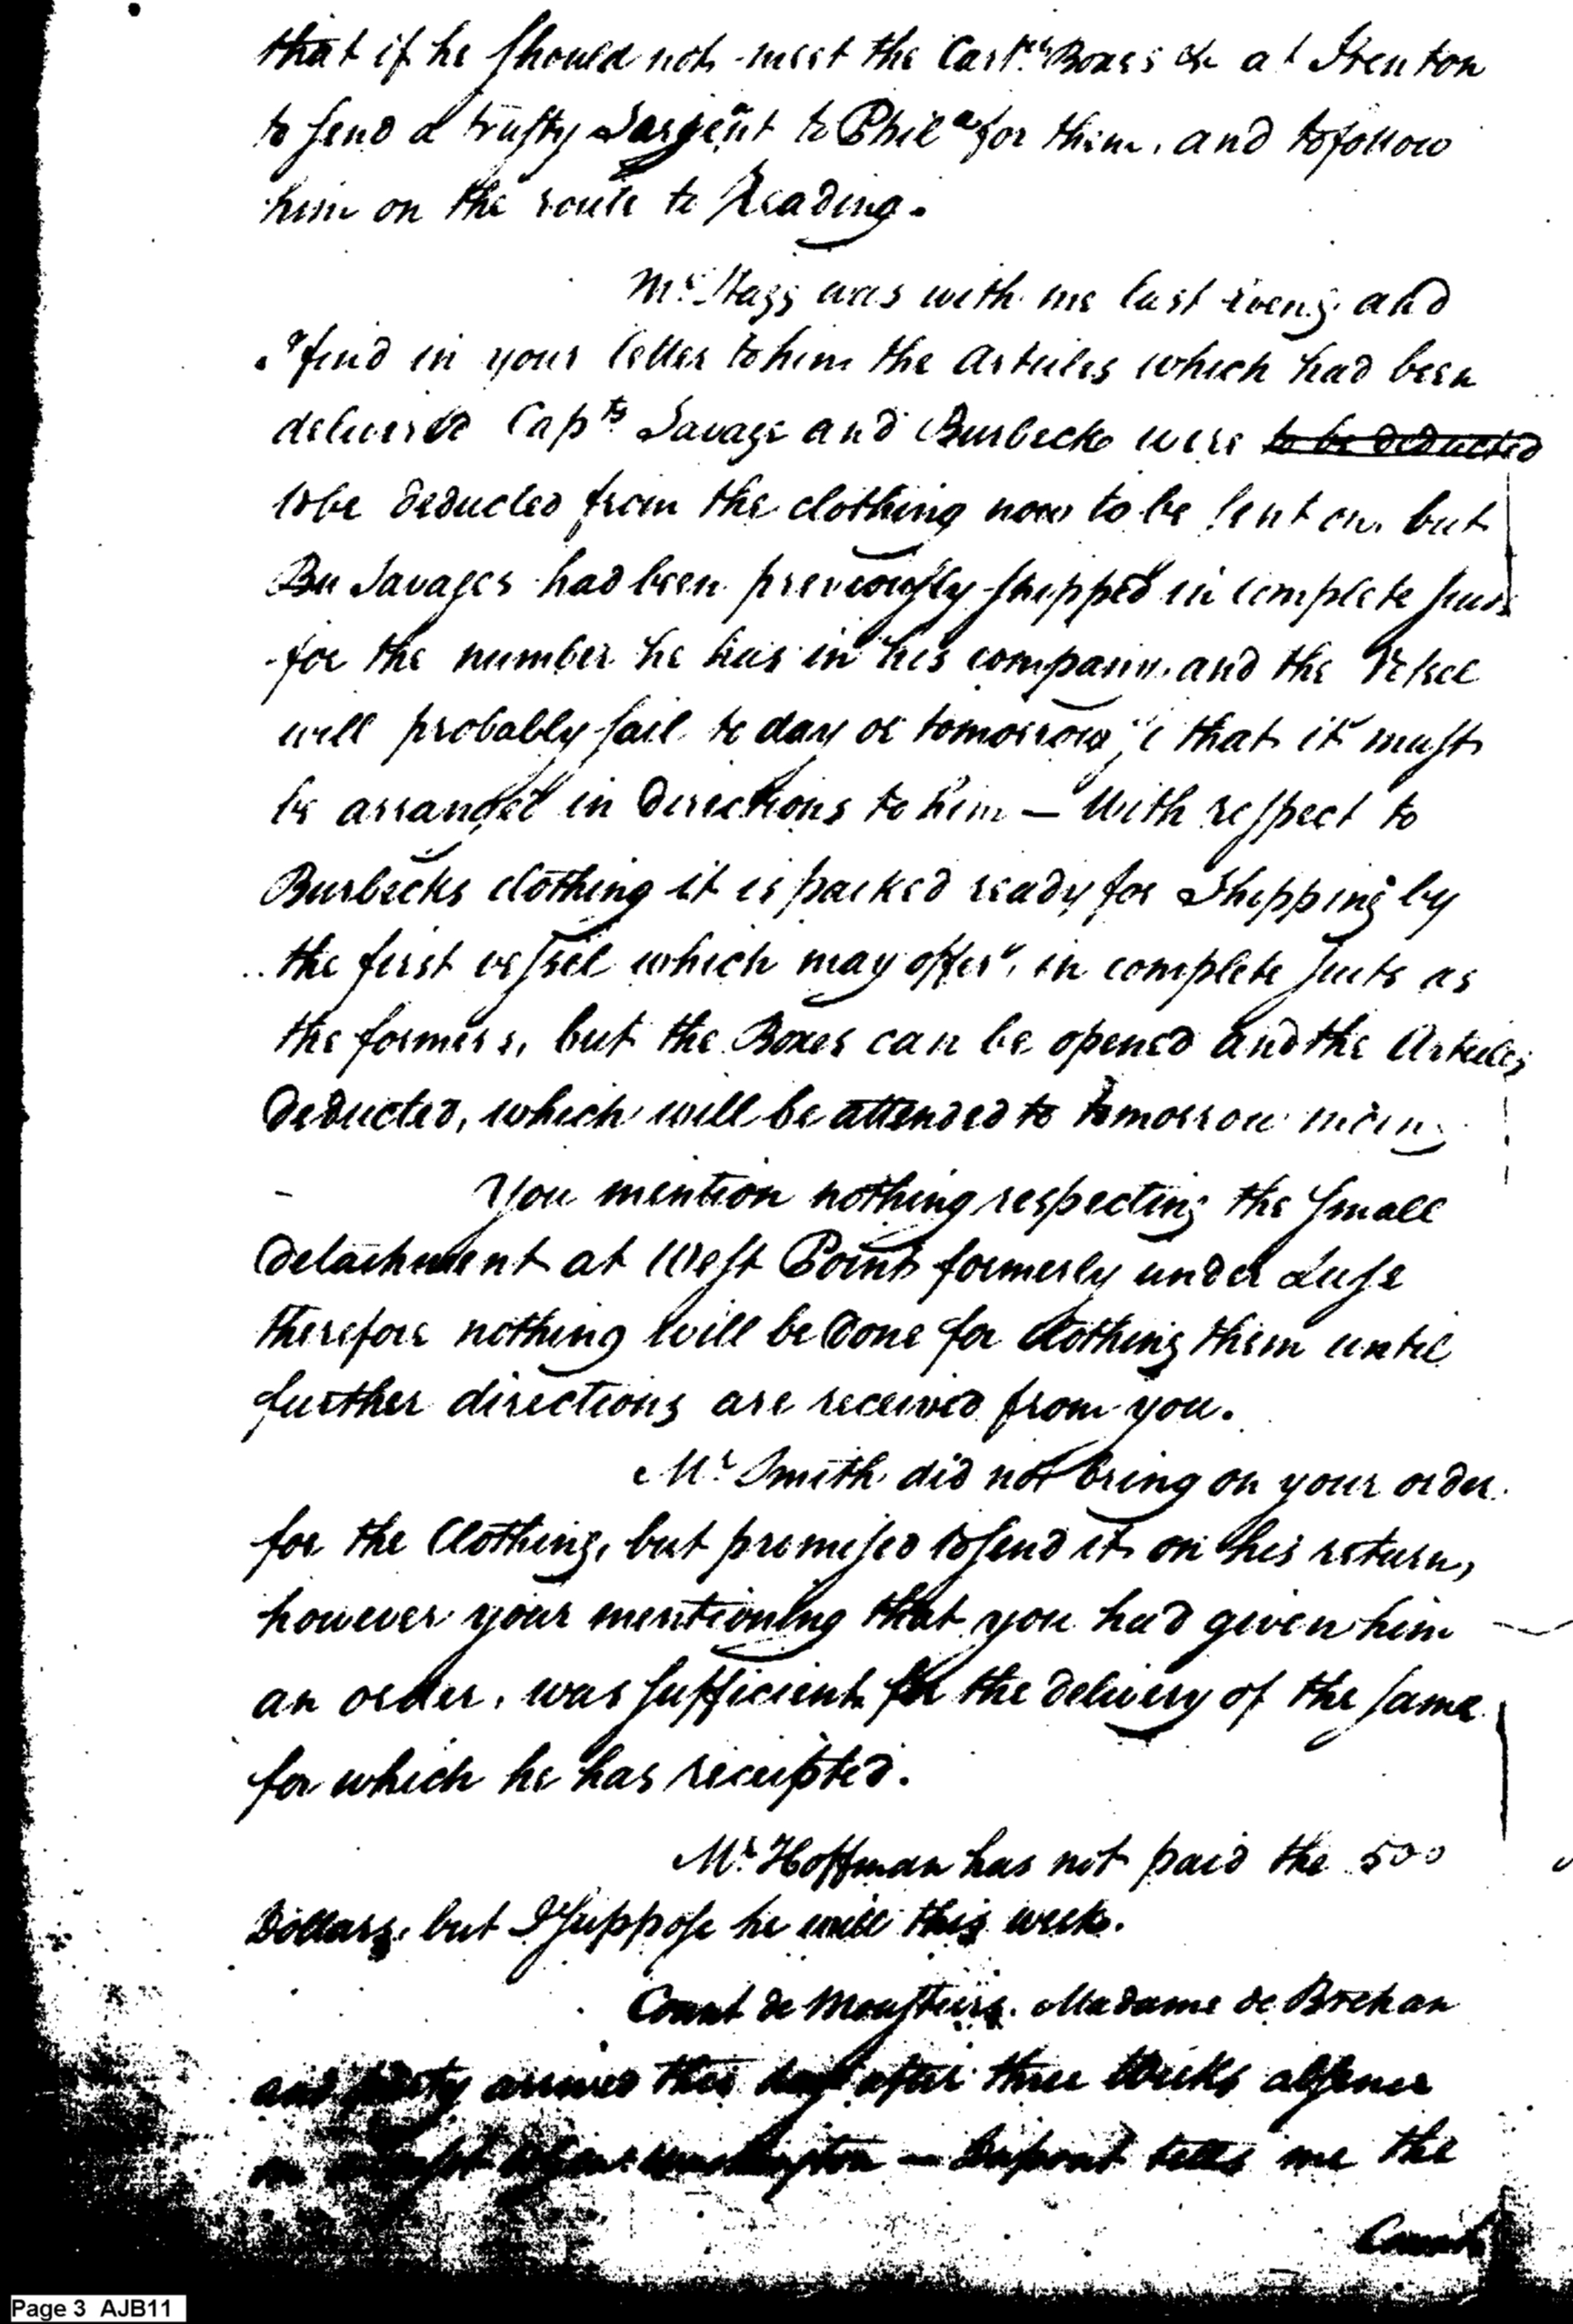 that if he should not meet the Cart.ch Boxes &c at Trenton
to send a trusty Sargent to Phila for them, and to follow
him on the route to Reading.
Mr. Stagg was with me last eveng. and
I find in your letter to him the articles which had been
delivered Capts Savage and Burbeck were to be deducted
to be deducted from the clothing now to be sent on, but
Savages had been previously shipped in complete suits
for the number he has in his company, and the Vessel
will probably sail to day or tomorrow, that it must
be arranged in directions to him — With respect to
Burbecks clothing it is packed ready for Shipping by
the first vessel which may offer, in complete suits as
the former, but the Boxes can be opened and the Articles
deducted, which will be attended to tomorrow morng
You mention nothing respecting the small
detachment at West Point formerly under Luse
therefore nothing will be done for clothing them until
further directions are received from you.
Mr. Smith did not bring on your order
for the Clothing, but promised to send it on his return,
however your mentioning that you had given him
an order, was sufficient for the delivery of the same
for which he has receipted.
Mr. Hoffman has not paid the 500
Dollars, but I suppose he will this week.
Count de Moustiers, Madame de Brehan
and party arrived this day after three Weeks absence
on Washington — Dupont tells me the
Count
Page 3 AJB11